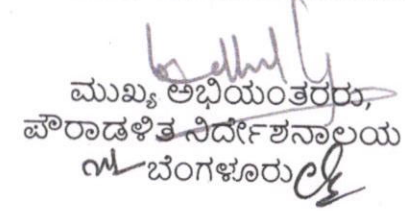 ಮುಖ್ಯ ಅಭಿಯಂತರರು,
ಪೌರಾಡಳಿತ ನಿರ್ದೇಶನಾಲಯ
ಬೆಂಗಳೂರು